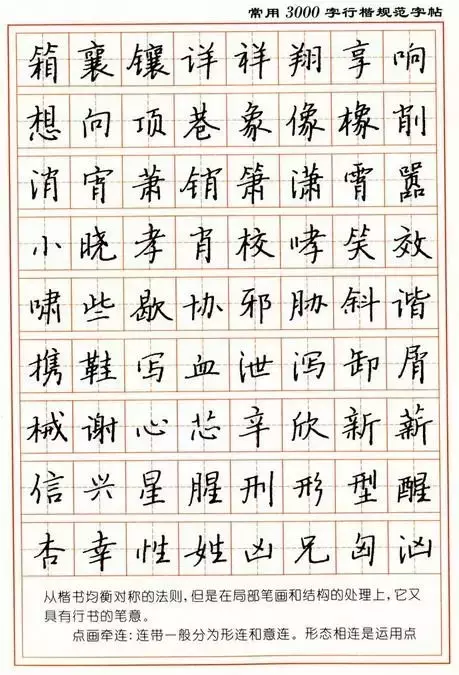 常用3000字行楷规范字帖
箱襄镶详祥翔享响
想向项巷象像橡削
消宵萧销箫潇霄嚣
小晓孝肖校哮笑效
啸些歇协邪胁斜谐
携鞋写血泄泻卸屑
械谢心芯辛欣新薪
信兴星腥刑形型醒
杏幸性姓凶兄匈汹
从楷书均衡对称的法则,但是在局部笔画和结构的处理上,它又
具有行书的笔意。
点画牵连:连带一般分为形连和意连。形态相连是运用点